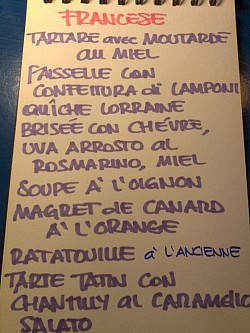 FRANCESE
TARTARE avec MOUTARDE
au MIEL
FAISSELLE CON
CONFETTURA di LAMPONI
QUÎCHE LORRAINE
BRISEÉ CON CHÉVRE,
UVA ARROSTO AL
ROSMARINO, MIEL
SOUPE À L'OIGNON
MAGRET de CANARD
À L'ORANGE
RATATOUILLE à L'ANCIENNE
TARTE TATIN CON
CHANTILLY AL CARAMELLO
SALATO